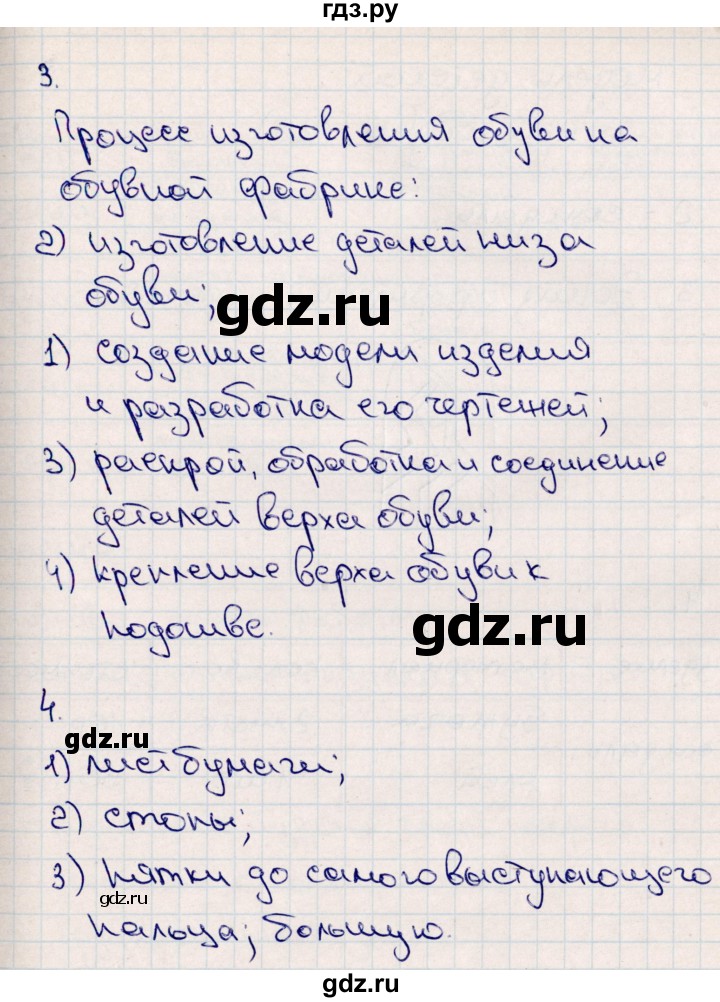 гдз.ру
3.
Процесс изготовления обуви на
обувной фабрике:
2) изготовление деталей низа
обуви;
gdz.ru
1) создание модели изделия
и разработка его чертежей;
3) раскрой, обработка и соединение
деталей верха обуви;
4) крепление верха обуви к
подошве.
gdz.ru
4.
gdz.ru
1) лист бумаги;
2) стопы;
3) пятки до самого выступающего
gdz.ru
пальца; большую.
gdz.ru